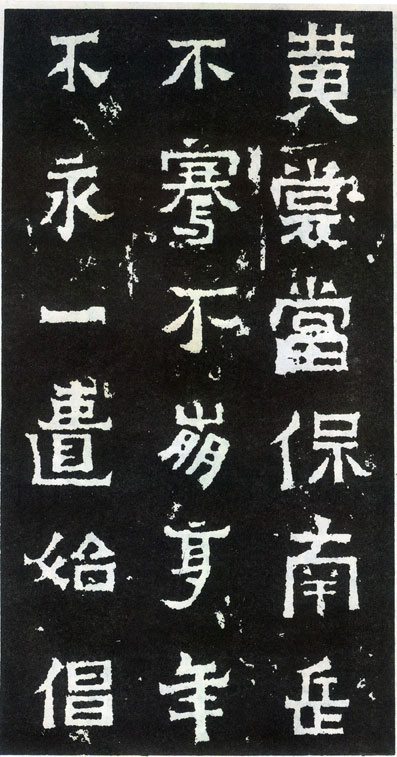 黃裳當保南岳
不騫不崩享年
不永一匱始倡